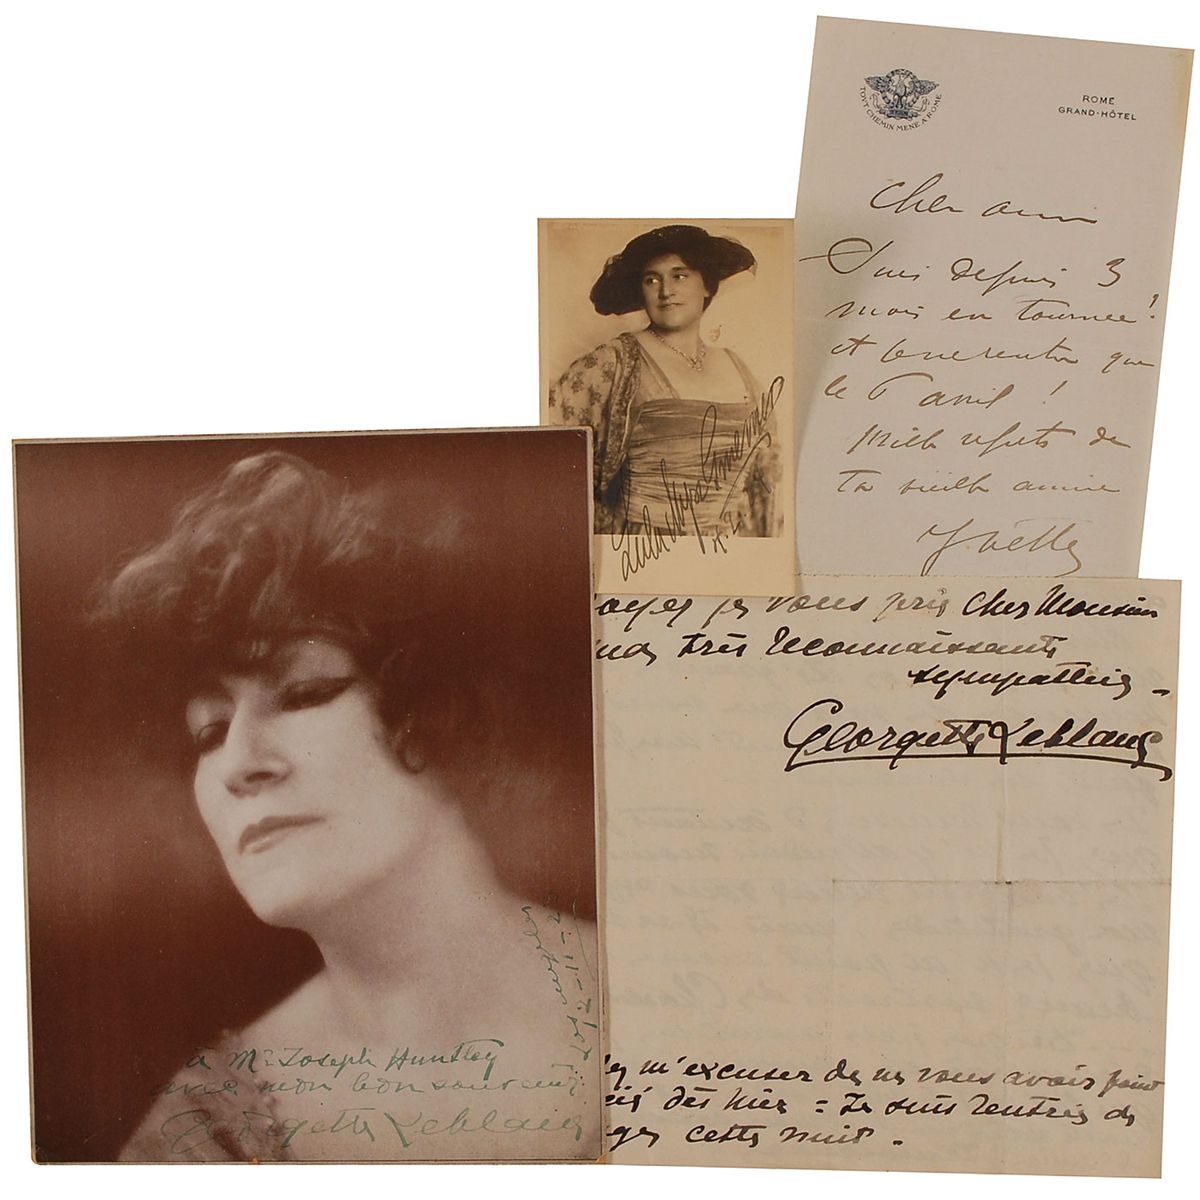 TOVT CHEMIN MENE A ROME
ROME
GRAND-HÔTEL
Cher ami
Suis depuis 3
mois en tournee!
et ne rentre que
le 5 avril!
Mille regrets de
ta vieille amie
Yvette
je vous prie cher Monsieur
très reconnaissante
sympathie -
Georgette Leblanc
m'excuser de ne vous avoir point
dès hier = Je suis rentrée de
cette nuit -
à Mr Joseph Huntley
avec mon bon souvenir
Georgette Leblanc
Los Angeles